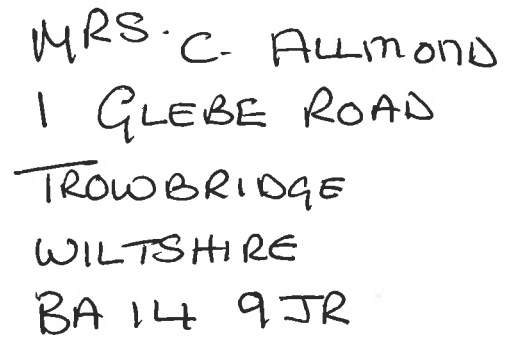 MRS. C. ALLMOND
1 GLEBE ROAD
TROWBRIDGE
WILTSHIRE
BA 14 9JR